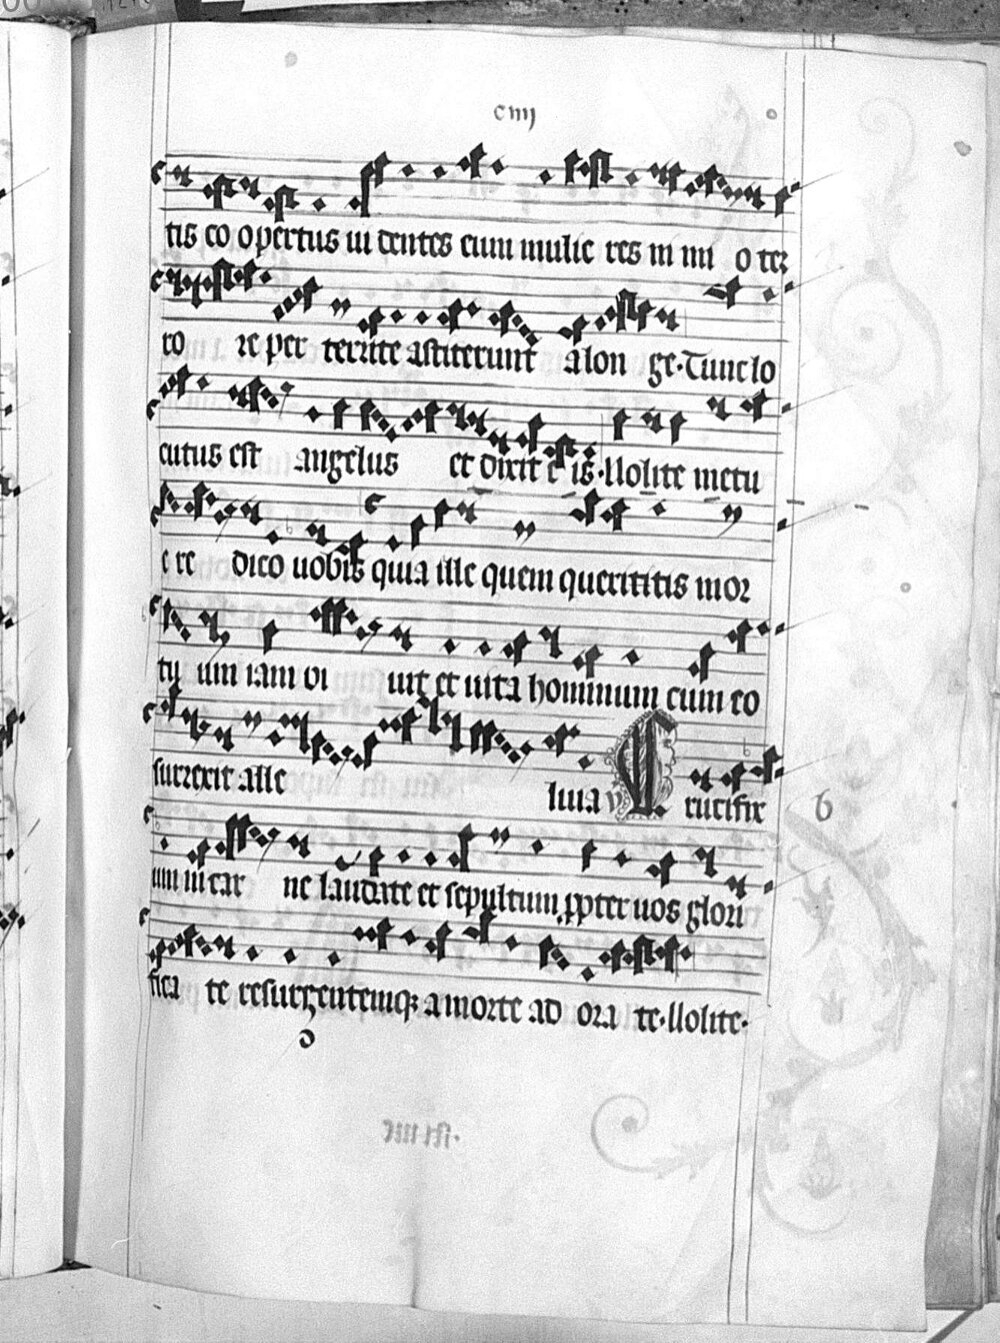 ciiij
tis co opertus ui dentes eum mulie res ni mi o ter
ro re per territe astiterunt alon ge. Tunc lo
cutus est angelus et dixit e is. Nolite metu
e re dico uobis quia ille quem queritis mor
tu um iam vi uit et uita hominum cum eo
surrexit alle luia V Crucifix
um in car ne laudate et sepultum ppter uos glori
fica te resurgentemq; a morte ad ora te. Nolite.